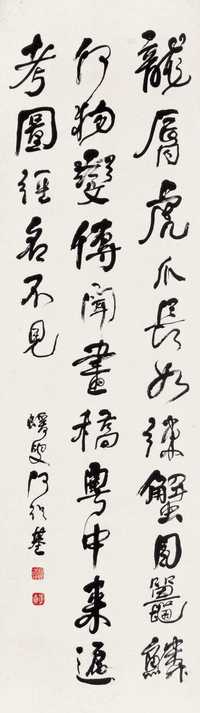 龍脣虎爪長如練蟹目鼉鱗
何物變傳聞畫稿粵中來遍
考圖經名不見
蝯叟何紹基